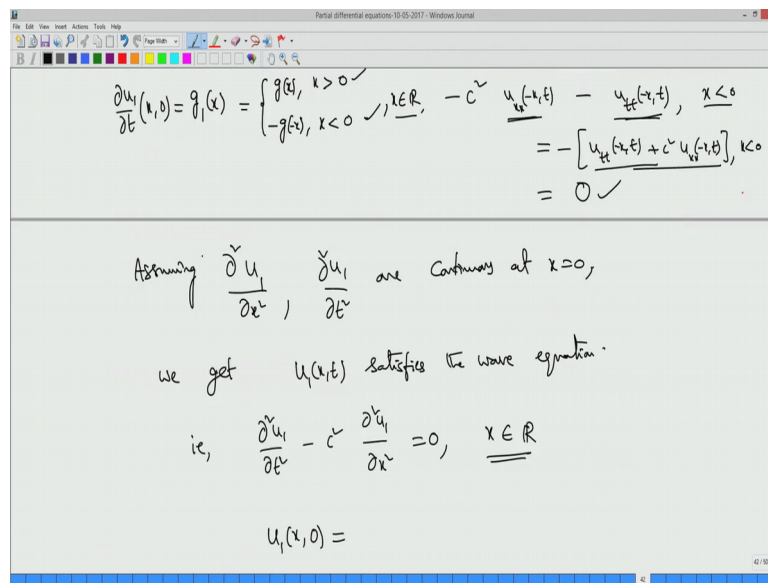 Partial differential equations-10-05-2017 - Windows Journal
File Edit View Insert Actions Tools Help
Page Width
B I
∂u₁/∂t (x,0) = g₁(x) = { g(x), x>0 ✓ ; -g(-x), x<0 ✓ , x∈ℝ, -c² u_xx(-x,t) - u_tt(-x,t), x<0
= -[u_tt(-x,t) + c² u_xx(-x,t)], x<0
= 0 ✓
Assuming ∂²u₁/∂x², ∂²u₁/∂t² are continuous at x=0,
we get u₁(x,t) satisfies the wave equation.
ie, ∂²u₁/∂t² - c² ∂²u₁/∂x² = 0, x ∈ ℝ
u₁(x,0) =
42/50
42